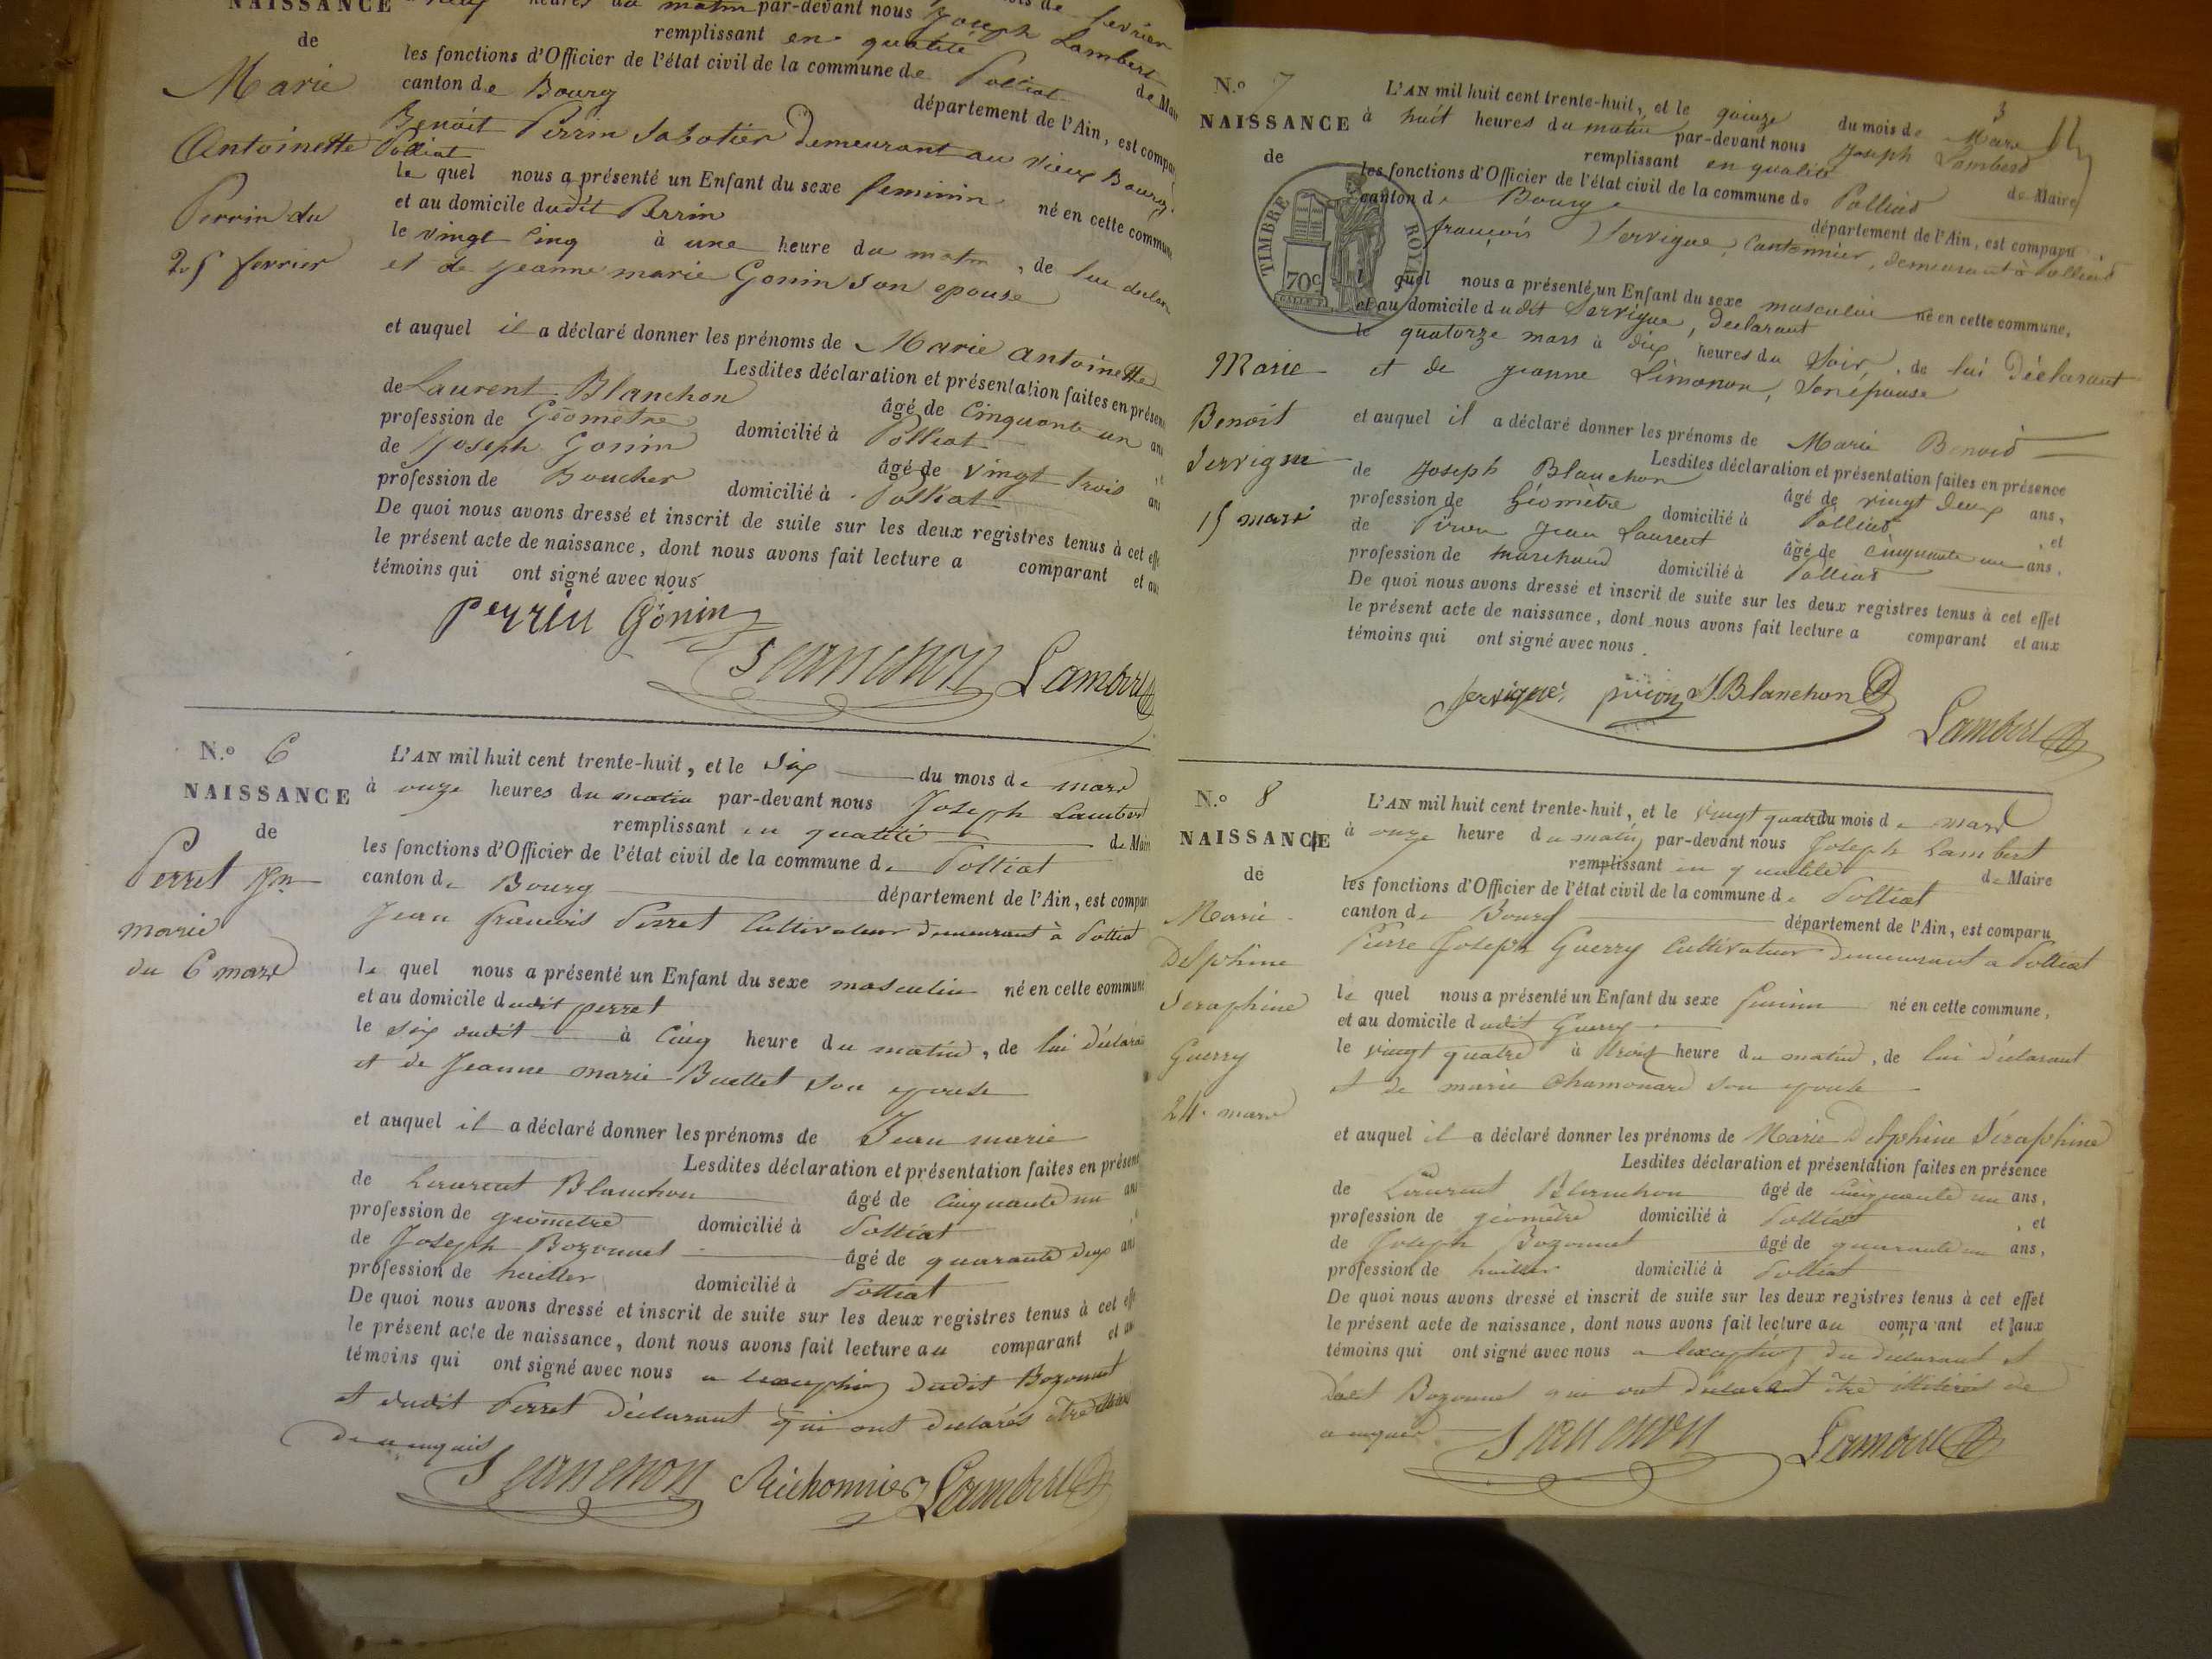 NAISSANCE
de
Marie
Antoinette
Perrin du
25 fevrier
heures du matin par-devant nous Joseph Lambert
remplissant en qualité
de Mai
les fonctions d'Officier de l'état civil de la commune de Polliat
canton de Bourg département de l'Ain, est compa
Benoit Perrin Sabotier demeurant au vieux Bourg
Polliat
le quel nous a présenté un Enfant du sexe feminin né en cette commun
et au domicile dudit Perrin
le vingt cinq à une heure du matin, de lui declar
et de jeanne marie Gonin son epouse
et auquel il a déclaré donner les prénoms de Marie antoinette
Lesdites déclaration et présentation faites en présen
de Laurent Blanchon âgé de Cinquante un an
profession de Géomètre domicilié à Polliat
de Joseph Gonin âgé de vingt trois ans
profession de Boucher domicilié à Polliat
De quoi nous avons dressé et inscrit de suite sur les deux registres tenus à cet effe
le présent acte de naissance, dont nous avons fait lecture a comparant et au
témoins qui ont signé avec nous
perrin Gonin
Blanchon Lambert
N.º 6
NAISSANCE
de
Perret Jn
marie
du 6 mars
L'AN mil huit cent trente-huit, et le Six du mois de mars
à onze heures du matin par-devant nous Joseph Lambert
remplissant en qualité de Mai
les fonctions d'Officier de l'état civil de la commune de Polliat
canton de Bourg département de l'Ain, est compar
Jean francois Perret Cultivateur demeurant à Polliat
le quel nous a présenté un Enfant du sexe masculin né en cette commune
et au domicile dudit perret
le six dudit à Cinq heure du matin, de lui déclara
et de Jeanne marie Buellet son epouse
et auquel il a déclaré donner les prénoms de Jean marie
Lesdites déclaration et présentation faites en présen
de Laurent Blanchon âgé de Cinquante un ans
profession de géomètre domicilié à Polliat
de Joseph Bozonnet âgé de quarante deux ans
profession de huillier domicilié à Polliat
De quoi nous avons dressé et inscrit de suite sur les deux registres tenus à cet effe
le présent acte de naissance, dont nous avons fait lecture au comparant et au
témoins qui ont signé avec nous a l'exception dudit Bozonnet
et dudit Perret déclarant qui ont declarés être
de ce enquis
Blanchon Richonnier Lambert
3
N.º 7
NAISSANCE
de
TIMBRE ROYAL
70c
Marie
Benoit
Servigne
15 mars
L'AN mil huit cent trente-huit, et le quinze du mois de Mars
à huit heures du matin par-devant nous Joseph Lambert
remplissant en qualité de Maire
les fonctions d'Officier de l'état civil de la commune de Polliat
canton de Bourg département de l'Ain, est comparu
françois Servigne, Cantonnier, demeurant à Polliat
l quel nous a présenté un Enfant du sexe masculin né en cette commune,
et au domicile dudit Servigne, déclarant
le quatorze mars à dix heures du Soir, de lui Déclarant
et de jeanne Limonon, Son épouse
et auquel il a déclaré donner les prénoms de Marie Benoit
Lesdites déclaration et présentation faites en présence
de Joseph Blanchon âgé de vingt deux ans,
profession de Géomètre domicilié à Polliat, et
de Piron Jean Laurent âgé de cinquante un ans,
profession de marchand domicilié à Polliat
De quoi nous avons dressé et inscrit de suite sur les deux registres tenus à cet effet
le présent acte de naissance, dont nous avons fait lecture a comparant et aux
témoins qui ont signé avec nous.
Servigne piron J Blanchon
Lambert
N.º 8
NAISSANCE
de
Marie
Delphine
Seraphine
Guerry
24 mars
L'AN mil huit cent trente-huit, et le vingt quatre du mois de mars
à onze heure du matin par-devant nous Joseph Lambert
remplissant en qualité de Maire
les fonctions d'Officier de l'état civil de la commune de Polliat
canton de Bourg département de l'Ain, est comparu
Pierre Joseph Guerry Cultivateur demeurant a Polliat
le quel nous a présenté un Enfant du sexe feminin né en cette commune,
et au domicile dudit Guerry
le vingt quatre à trois heure du matin, de lui déclarant
et de marie Chamonard son epouse
et auquel il a déclaré donner les prénoms de Marie Delphine Séraphine
Lesdites déclaration et présentation faites en présence
de Laurent Blanchon âgé de Cinquante un ans,
profession de géomètre domicilié à Polliat, et
de Joseph Bozonnet âgé de quarante un ans,
profession de huillier domicilié à Polliat
De quoi nous avons dressé et inscrit de suite sur les deux registres tenus à cet effet
le présent acte de naissance, dont nous avons fait lecture au comparant et aux
témoins qui ont signé avec nous a l'exception du déclarant et
dudit Bozonnet qui ont déclarent être illitérés de
ce enquis
Blanchon Lambert